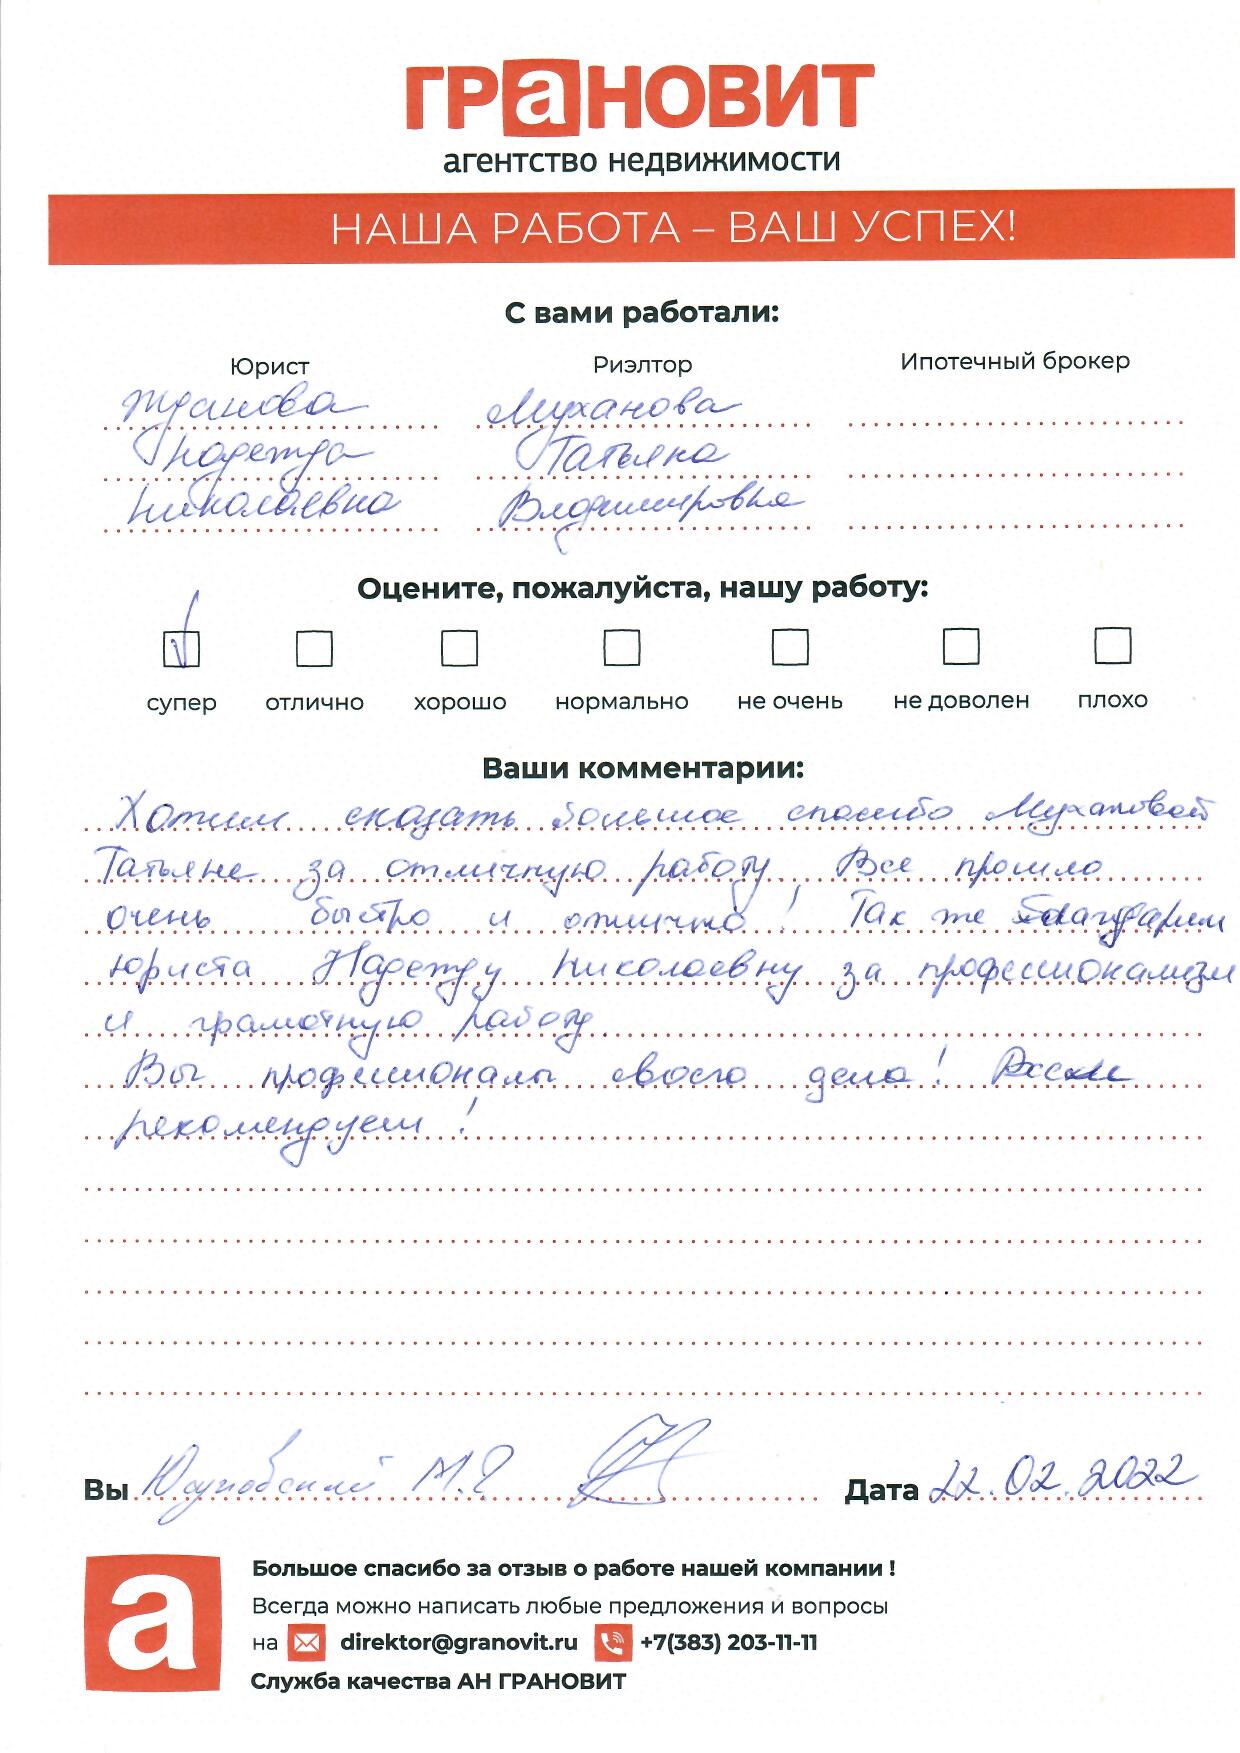 ГРаНОВИТ
агентство недвижимости
НАША РАБОТА – ВАШ УСПЕХ!
С вами работали:
Юрист Риэлтор Ипотечный брокер
Жданова Муханова
Надежда Татьяна
Николаевна Владимировна
Оцените, пожалуйста, нашу работу:
супер отлично хорошо нормально не очень не доволен плохо
Ваши комментарии:
Хотим сказать большое спасибо Мухановой
Татьяне за отличную работу. Все прошло
очень быстро и отлично! Так же благодарим
юриста Надежду Николаевну за профессионализм
и грамотную работу.
Вы профессионалы своего дела!
рекомендуем!
Вы М.
Дата 22.02.2022
а
Большое спасибо за отзыв о работе нашей компании !
Всегда можно написать любые предложения и вопросы
на direktor@granovit.ru +7(383) 203-11-11
Служба качества АН ГРАНОВИТ